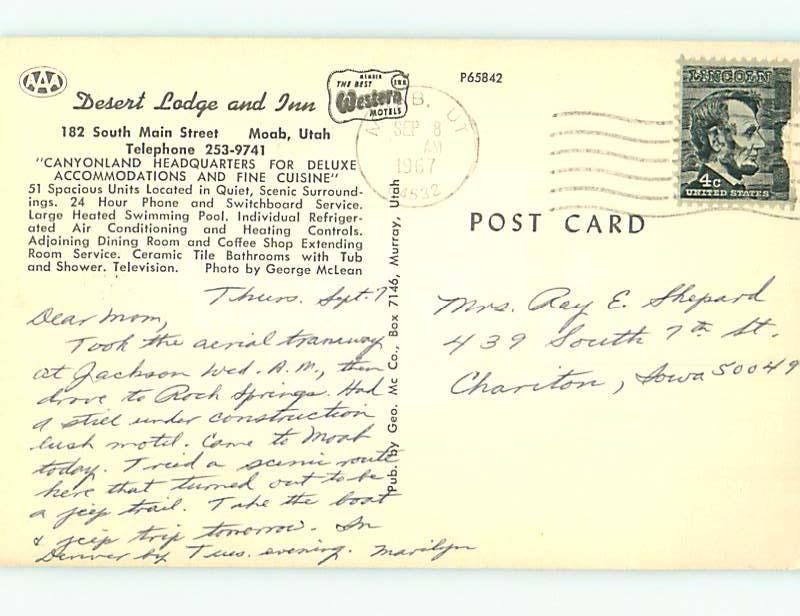 AAA
Desert Lodge and Inn
182 South Main Street Moab, Utah
Telephone 253-9741
"CANYONLAND HEADQUARTERS FOR DELUXE
ACCOMMODATIONS AND FINE CUISINE"
51 Spacious Units Located in Quiet, Scenic Surround-
ings. 24 Hour Phone and Switchboard Service.
Large Heated Swimming Pool. Individual Refriger-
ated Air Conditioning and Heating Controls.
Adjoining Dining Room and Coffee Shop Extending
Room Service. Ceramic Tile Bathrooms with Tub
and Shower. Television. Photo by George McLean
MEMBER
THE BEST
Western
MOTELS
P65842
UT
SEP 8
AM
1967
LINCOLN
4c
UNITED STATES
Pub. by Geo. Mc Co., Box 7146, Murray, Utah
POST CARD
Thurs. Sept. 7
Dear Mom,
Took the aerial tramway
at Jackson Wed. A.M., then
drove to Rock Springs. Had
a still under construction
lush motel. Came to Moab
today. Tried a scenic route
here that turned out to be
a jeep trail. Take the boat
& jeep trip tomorrow. In
Denver by Tues. evening. Marilyn
Mrs. Ray E. Shepard
439 South 7th St.
Chariton, Iowa 50049